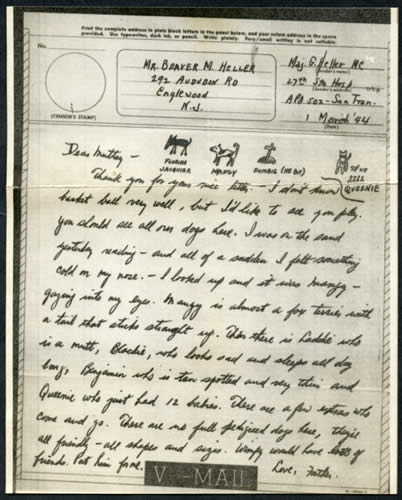 Print the complete address in plain block letters in the panel below, and your return address in the space
provided. Use typewriter, dark ink, or pencil. Write plainly. Very small writing is not suitable.
No.
(CENSOR'S STAMP)
MR. BEAVER M. HELLER
292 AUDUBON RD
ENGLEWOOD
N.J.
Maj. G. Heller MC
(Sender's name)
27th Sta Hosp
(Sender's address)
APO 502 - San Fran.
1 March '44
(Date)
Dear Muttsy -
FLORIDA
JACQUIER
MANGY
DUMBIE (HE DIE)
QUEENIE
Thank you for your nice letter. - I don't know
basket ball very well, but I'd like to see you play.
You should see all our dogs here. I was on the sand
yesterday reading - and all of a sudden I felt something
cold on my nose. - I looked up and it was Mangy -
gazing into my eyes. Mangy is almost a fox terrier with
a tail that sticks straight up. Then there is Laddie who
is a mutt, Blackie, who looks sad and sleeps all day
long, Benjamin who is tan spotted and very thin and
Queenie who just had 12 babies. There are a few extras who
come and go. There are no full pedigreed dogs here, they're
all friendly - all shapes and sizes. Wimpy would have lots of
friends. Pat him for me.
Love, Father.
V - MAIL